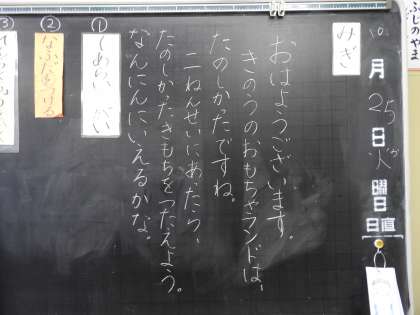 ふじのやま
10
月
25
日
火
曜
日
日直
みぎ
おはようございます。
きのうのおもちゃランドは、
たのしかたですね。
二ねんせいにあったら、
たのしかたきもちをつたえよう。
なんにんにいえるかな。
①
てあらい
②
なふだをつける
③